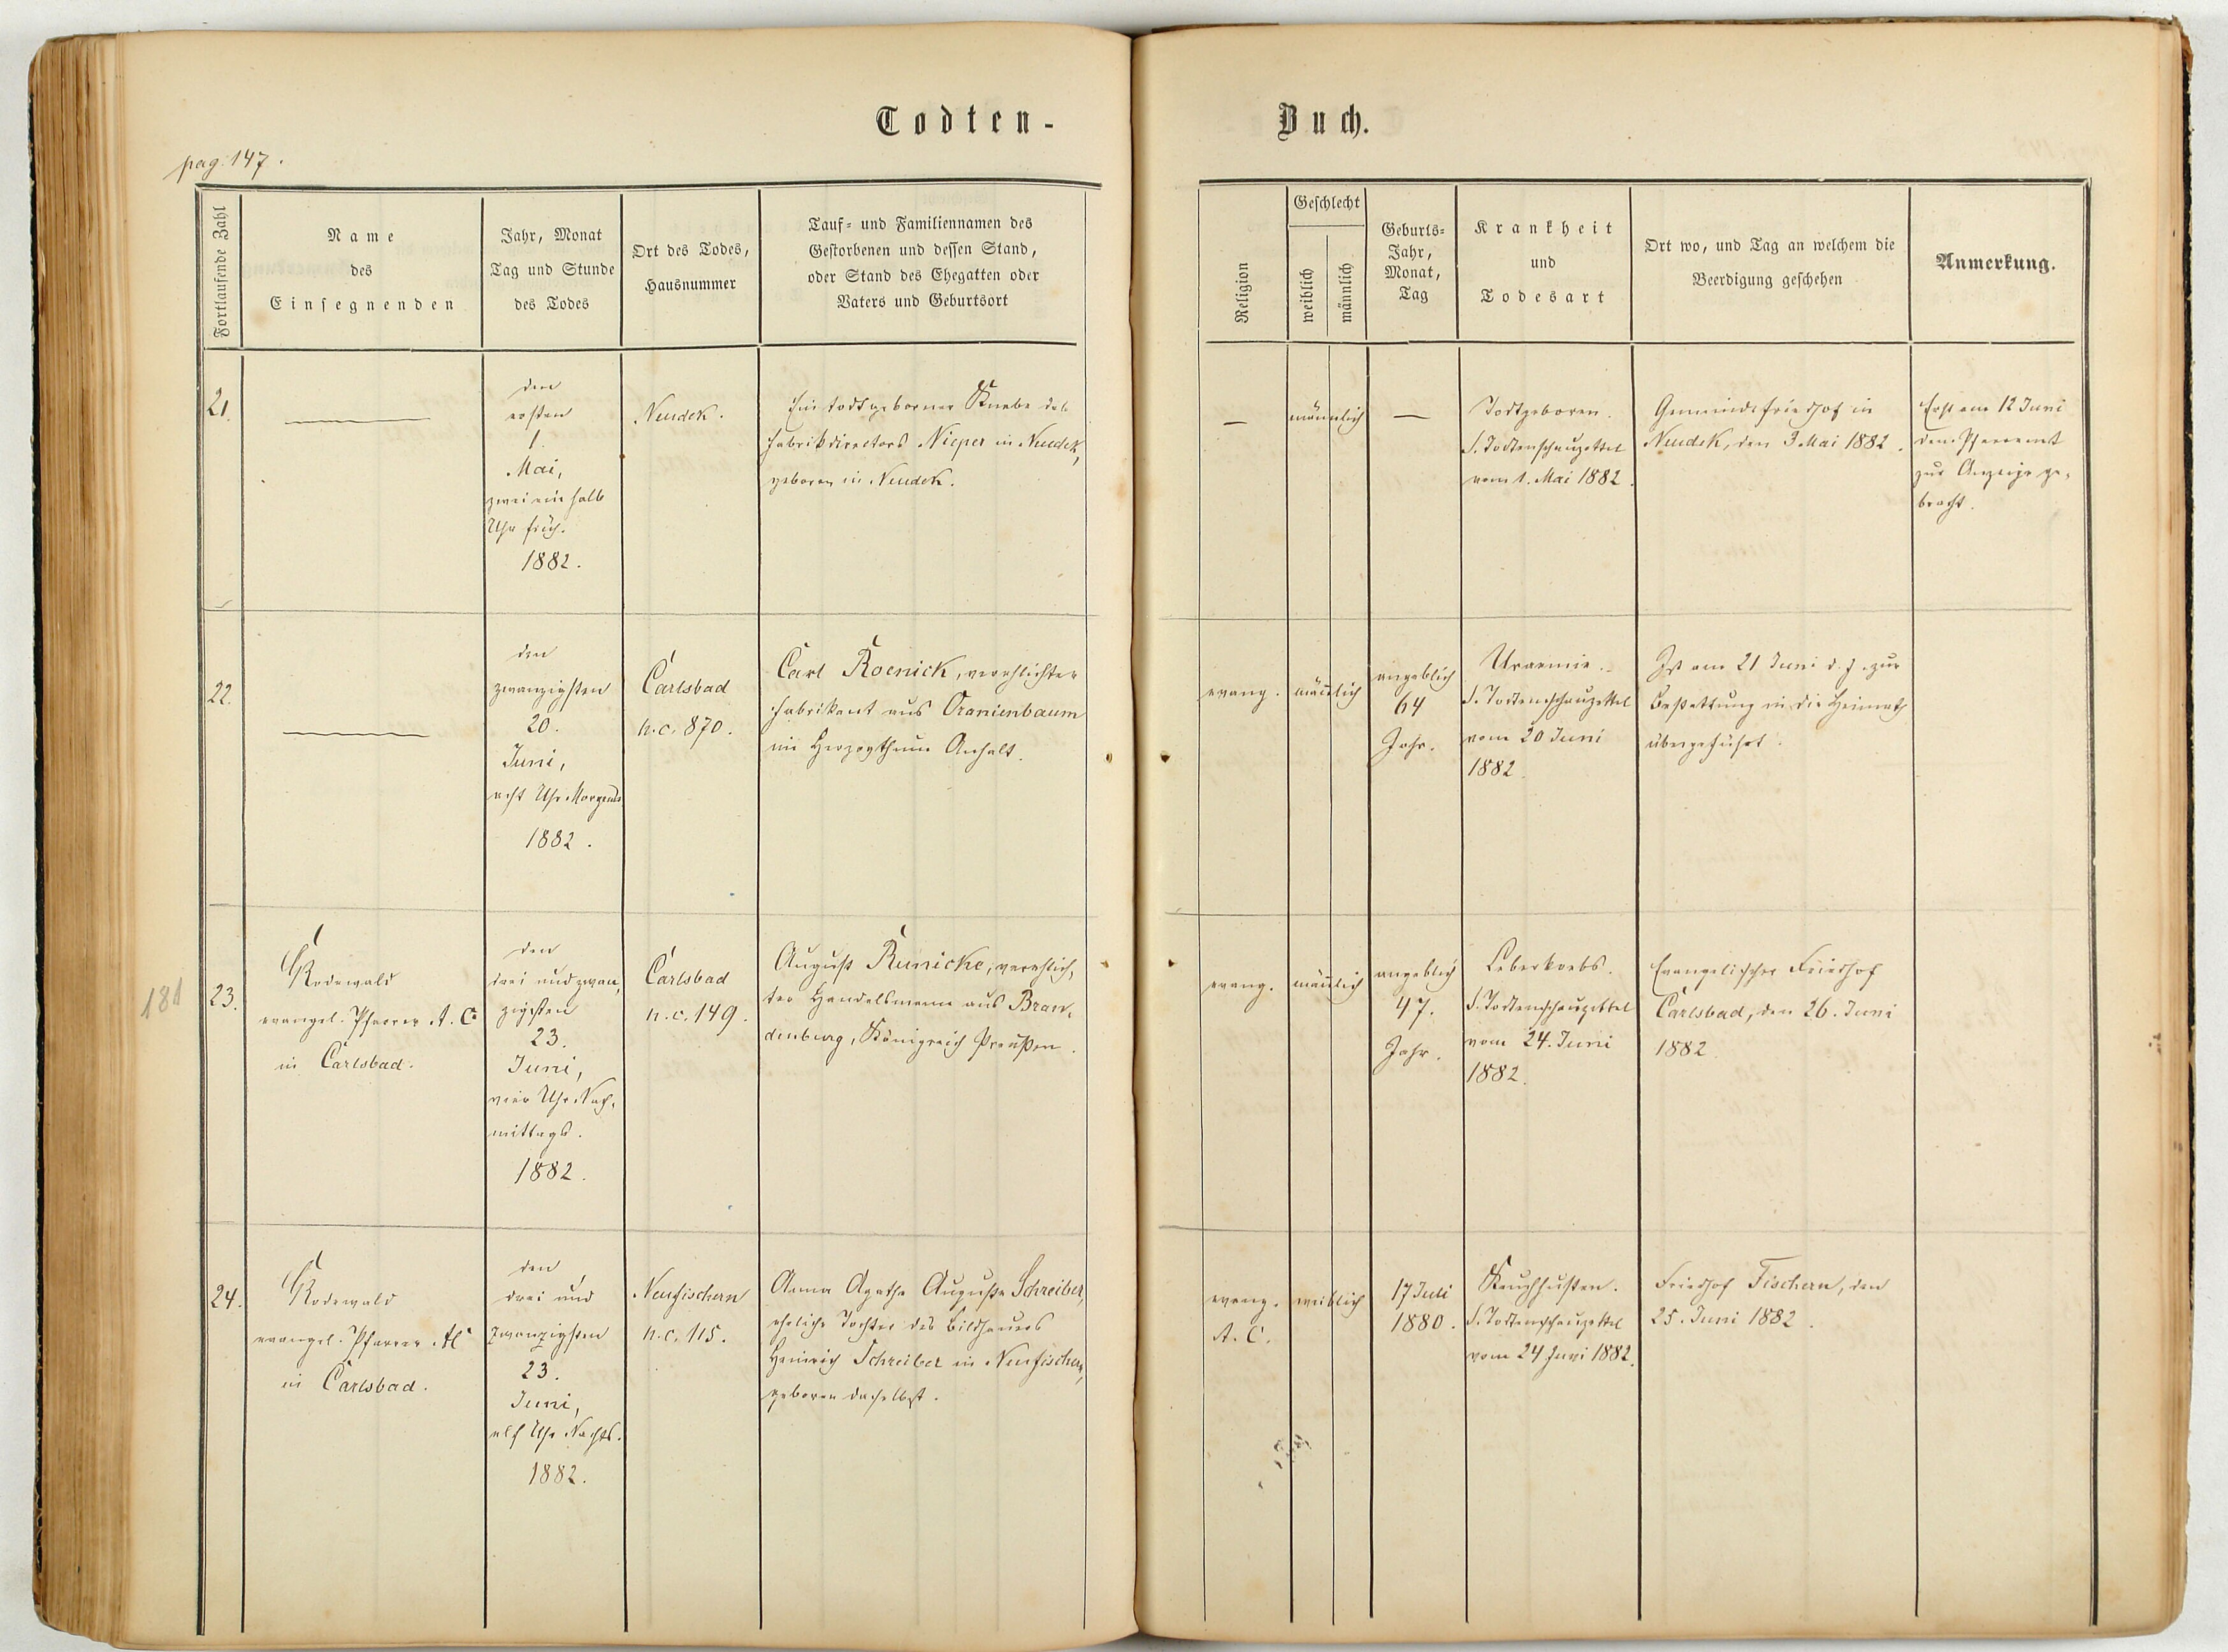 Todten-
Buch.
pag: 147.
Fortlaufende Zahl
Name
des
Einsegnenden
Jahr, Monat
Tag und Stunde
des Todes
Ort des Todes,
Hausnummer
Tauf- und Familiennamen des
Gestorbenen und dessen Stand,
oder Stand des Ehegatten oder
Vaters und Geburtsort
Religion
Geschlecht
weiblich
männlich
Geburts-
Jahr,
Monat,
Tag
Krankheit
und
Todesart
Ort wo, und Tag an welchem die
Beerdigung geschehen
Anmerkung.
21.
den
ersten
1.
Mai,
zwei ein halb
Uhr früh.
1882.
Neudek.
Ein todtgeborner Knabe des
Fabrikdirectors Nieper in Neudek,
geboren in Neudek.
—
männlich
—
Todtgeboren.
S. Todtenschauzettel
vom 1. Mai 1882.
Gemeindefriedhof in
Neudek, den 3 Mai 1882.
Erst am 12 Juni
dem Pfarramt
zur Anzeige ge-
bracht.
22.
den
zwanzigsten
20.
Juni,
acht Uhr Morgens
1882.
Carlsbad
n. c. 870.
Carl Roenick, verehlichter
Fabrikant aus Oranienbaum
im Herzogthum Anhalt.
evang.
männlich
angeblich
64
Jahr.
Uraemie.
S. Todtenschauzettel
vom 20 Juni
1882.
Ist am 21 Juni d. J. zur
Bestattung in die Heimath
übergeführt.
181
23.
Rodewald
evangel. Pfarrer A. C.
in Carlsbad.
den
drei und zwan-
zigsten
23.
Juni,
vier Uhr Nach-
mittags.
1882.
Carlsbad
n. c. 149.
August Runicke, verehlich-
ter Handelsmann aus Bran-
denburg, Königreich Preußen.
evang.
männlich
angeblich
47.
Jahr.
Leberkrebs.
S. Todtenschauzettel
vom 24. Juni
1882.
Evangelischer Friedhof
Carlsbad, den 26. Juni
1882.
24.
Rodewald
evangel. Pfarrer AC
in Carlsbad.
den
drei und
zwanzigsten
23.
Juni,
elf Uhr Nachts.
1882.
Neufischern
n. c. 115.
Anna Agathe Auguste Schreiber,
eheliche Tochter des Bildhauers
Heinrich Schreiber in Neufischern,
geboren daselbst.
evang.
A. C.
weiblich
17 Juli
1880.
Keuchhusten.
S. Todtenschauzettel
vom 24 Juni 1882.
Friedhof Fischern, den
25. Juni 1882.